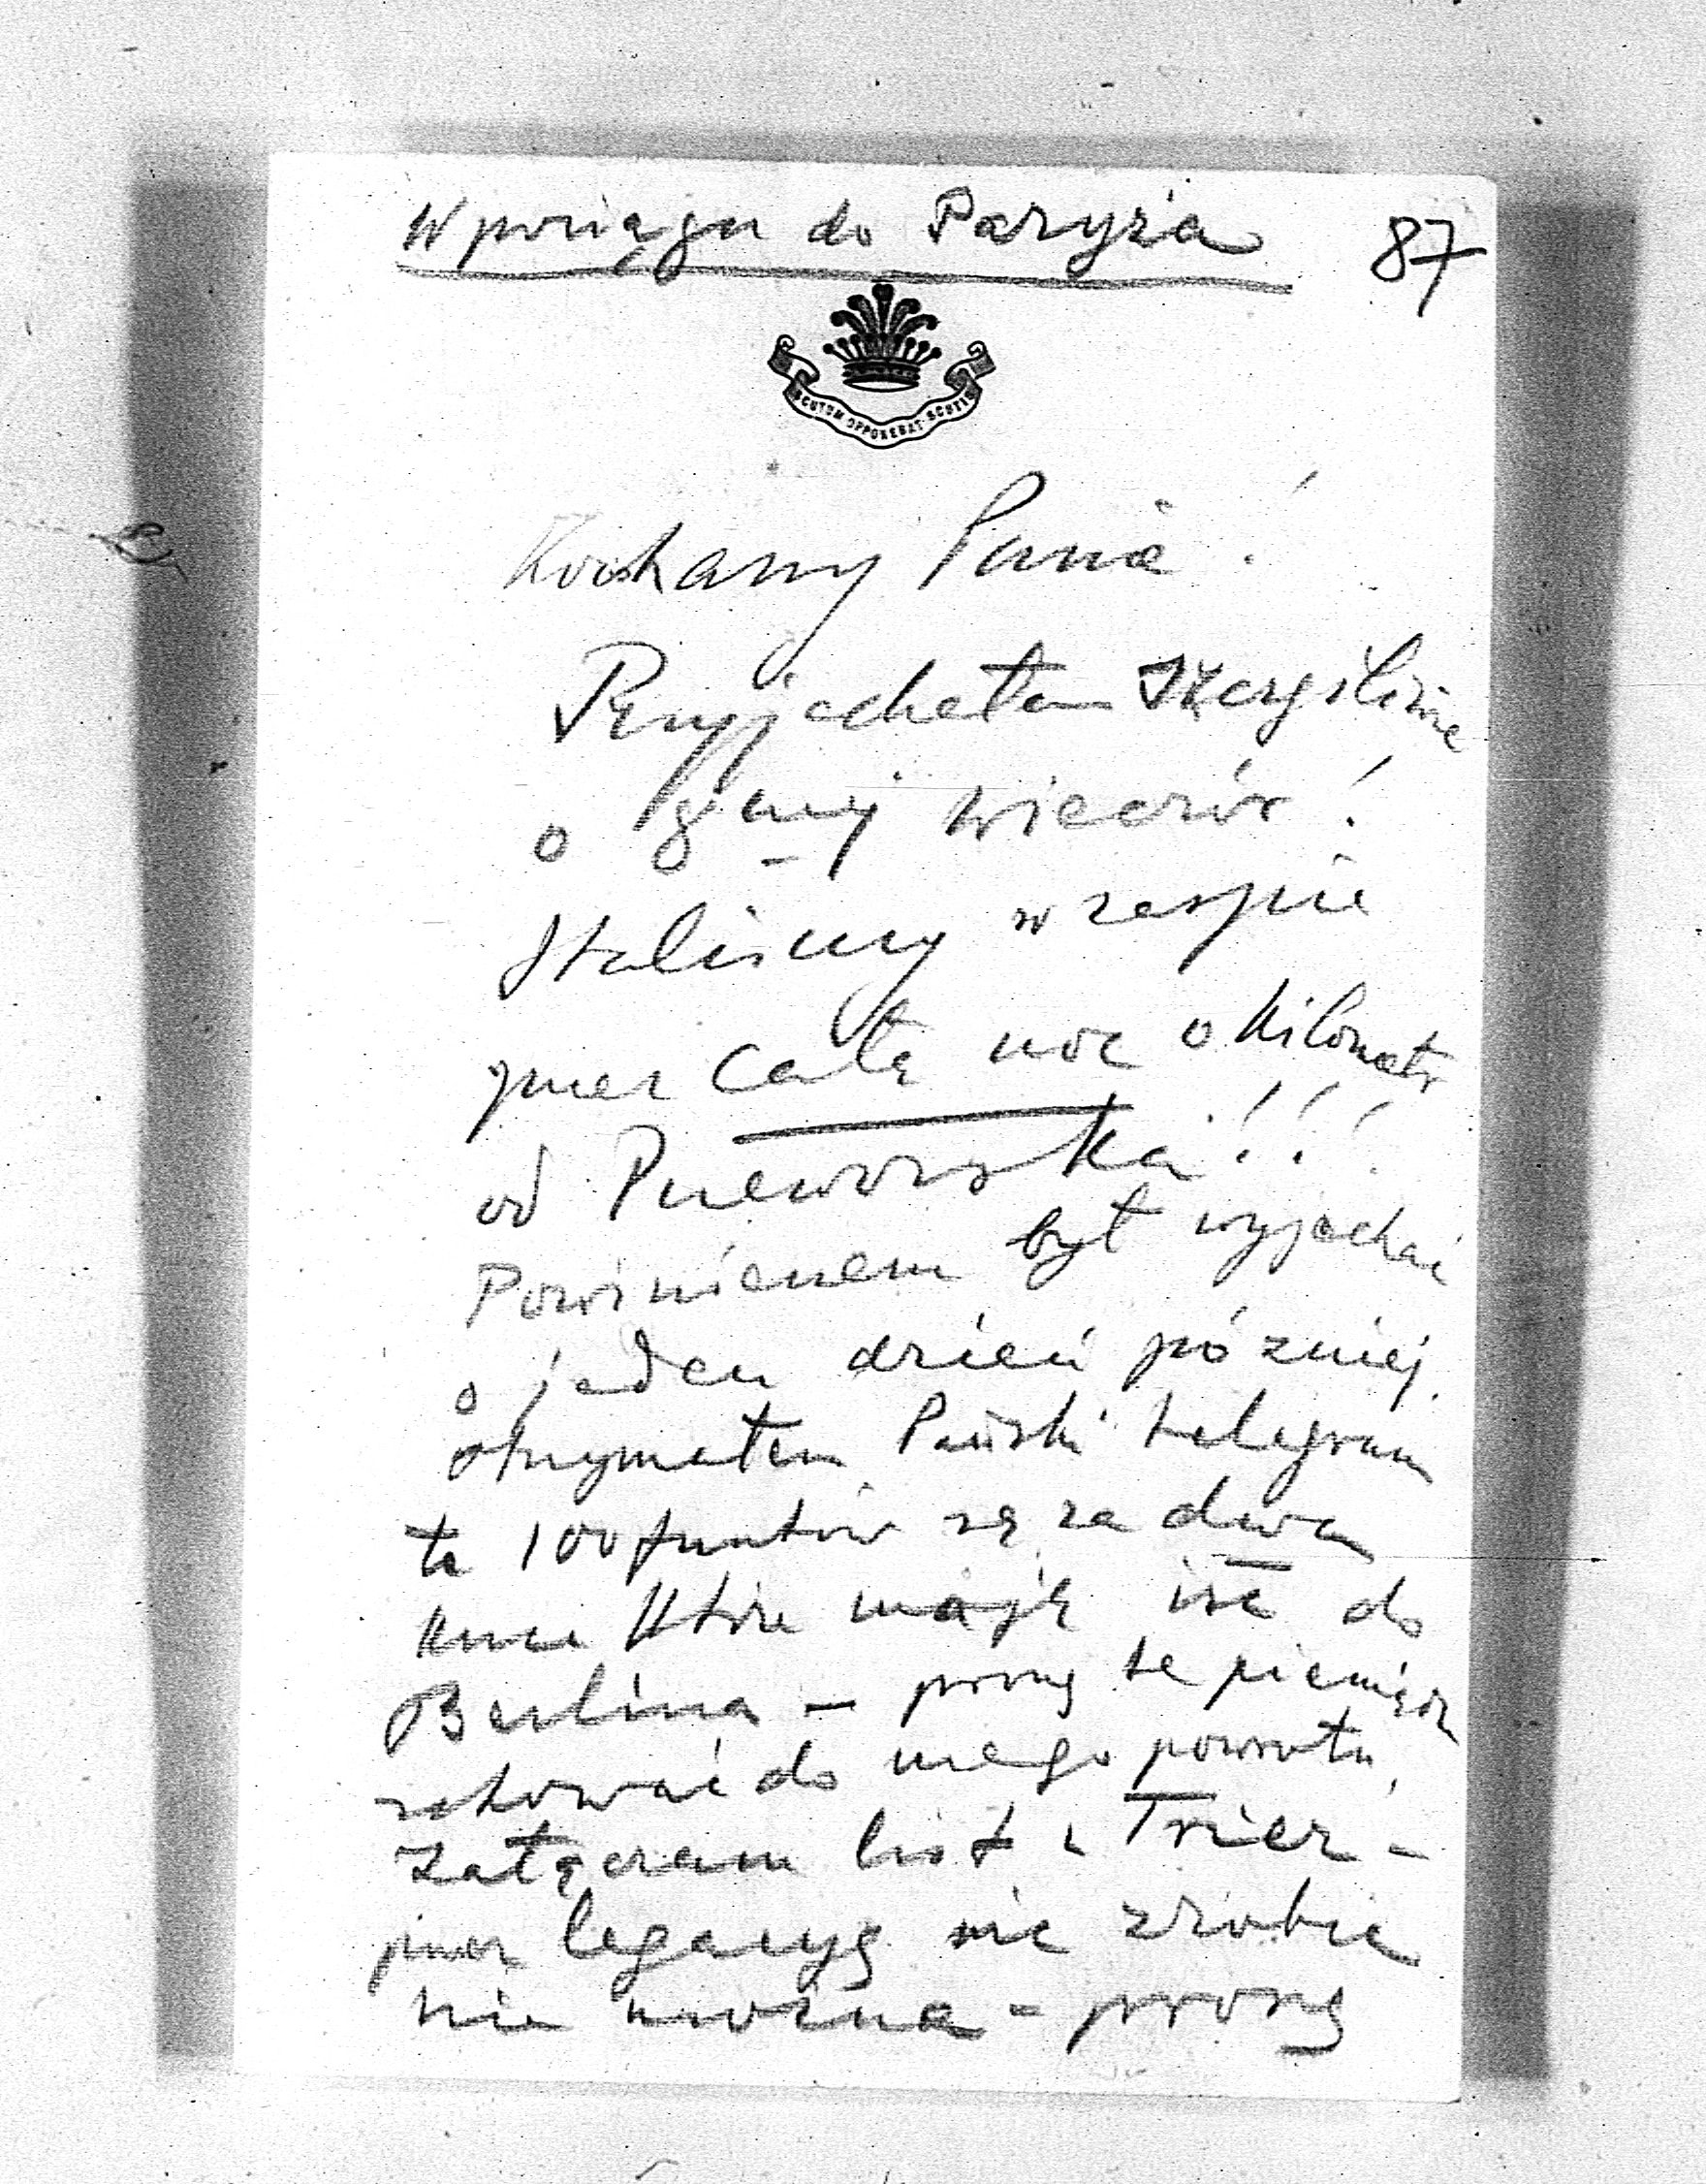 W pociągu do Paryża 87
SCUTUM OPPONEBAT SCUTIS
Kochany Panie!
Przyjechałem szczęśliwie
o 7ej wieczór!
Staliśmy w zaspie
przez całą noc o kilometr
od Przeworska!!!
Powinienem był wyjechać
o jeden dzień później.
otrzymałem Pański telegram
te 100 funtów są za dwa
które mają iść do
Berlina – proszę te pieniądze
schować do mego powrotu,
Załączam list z Trier –
przez legacyę nic zrobić
nie można – proszę